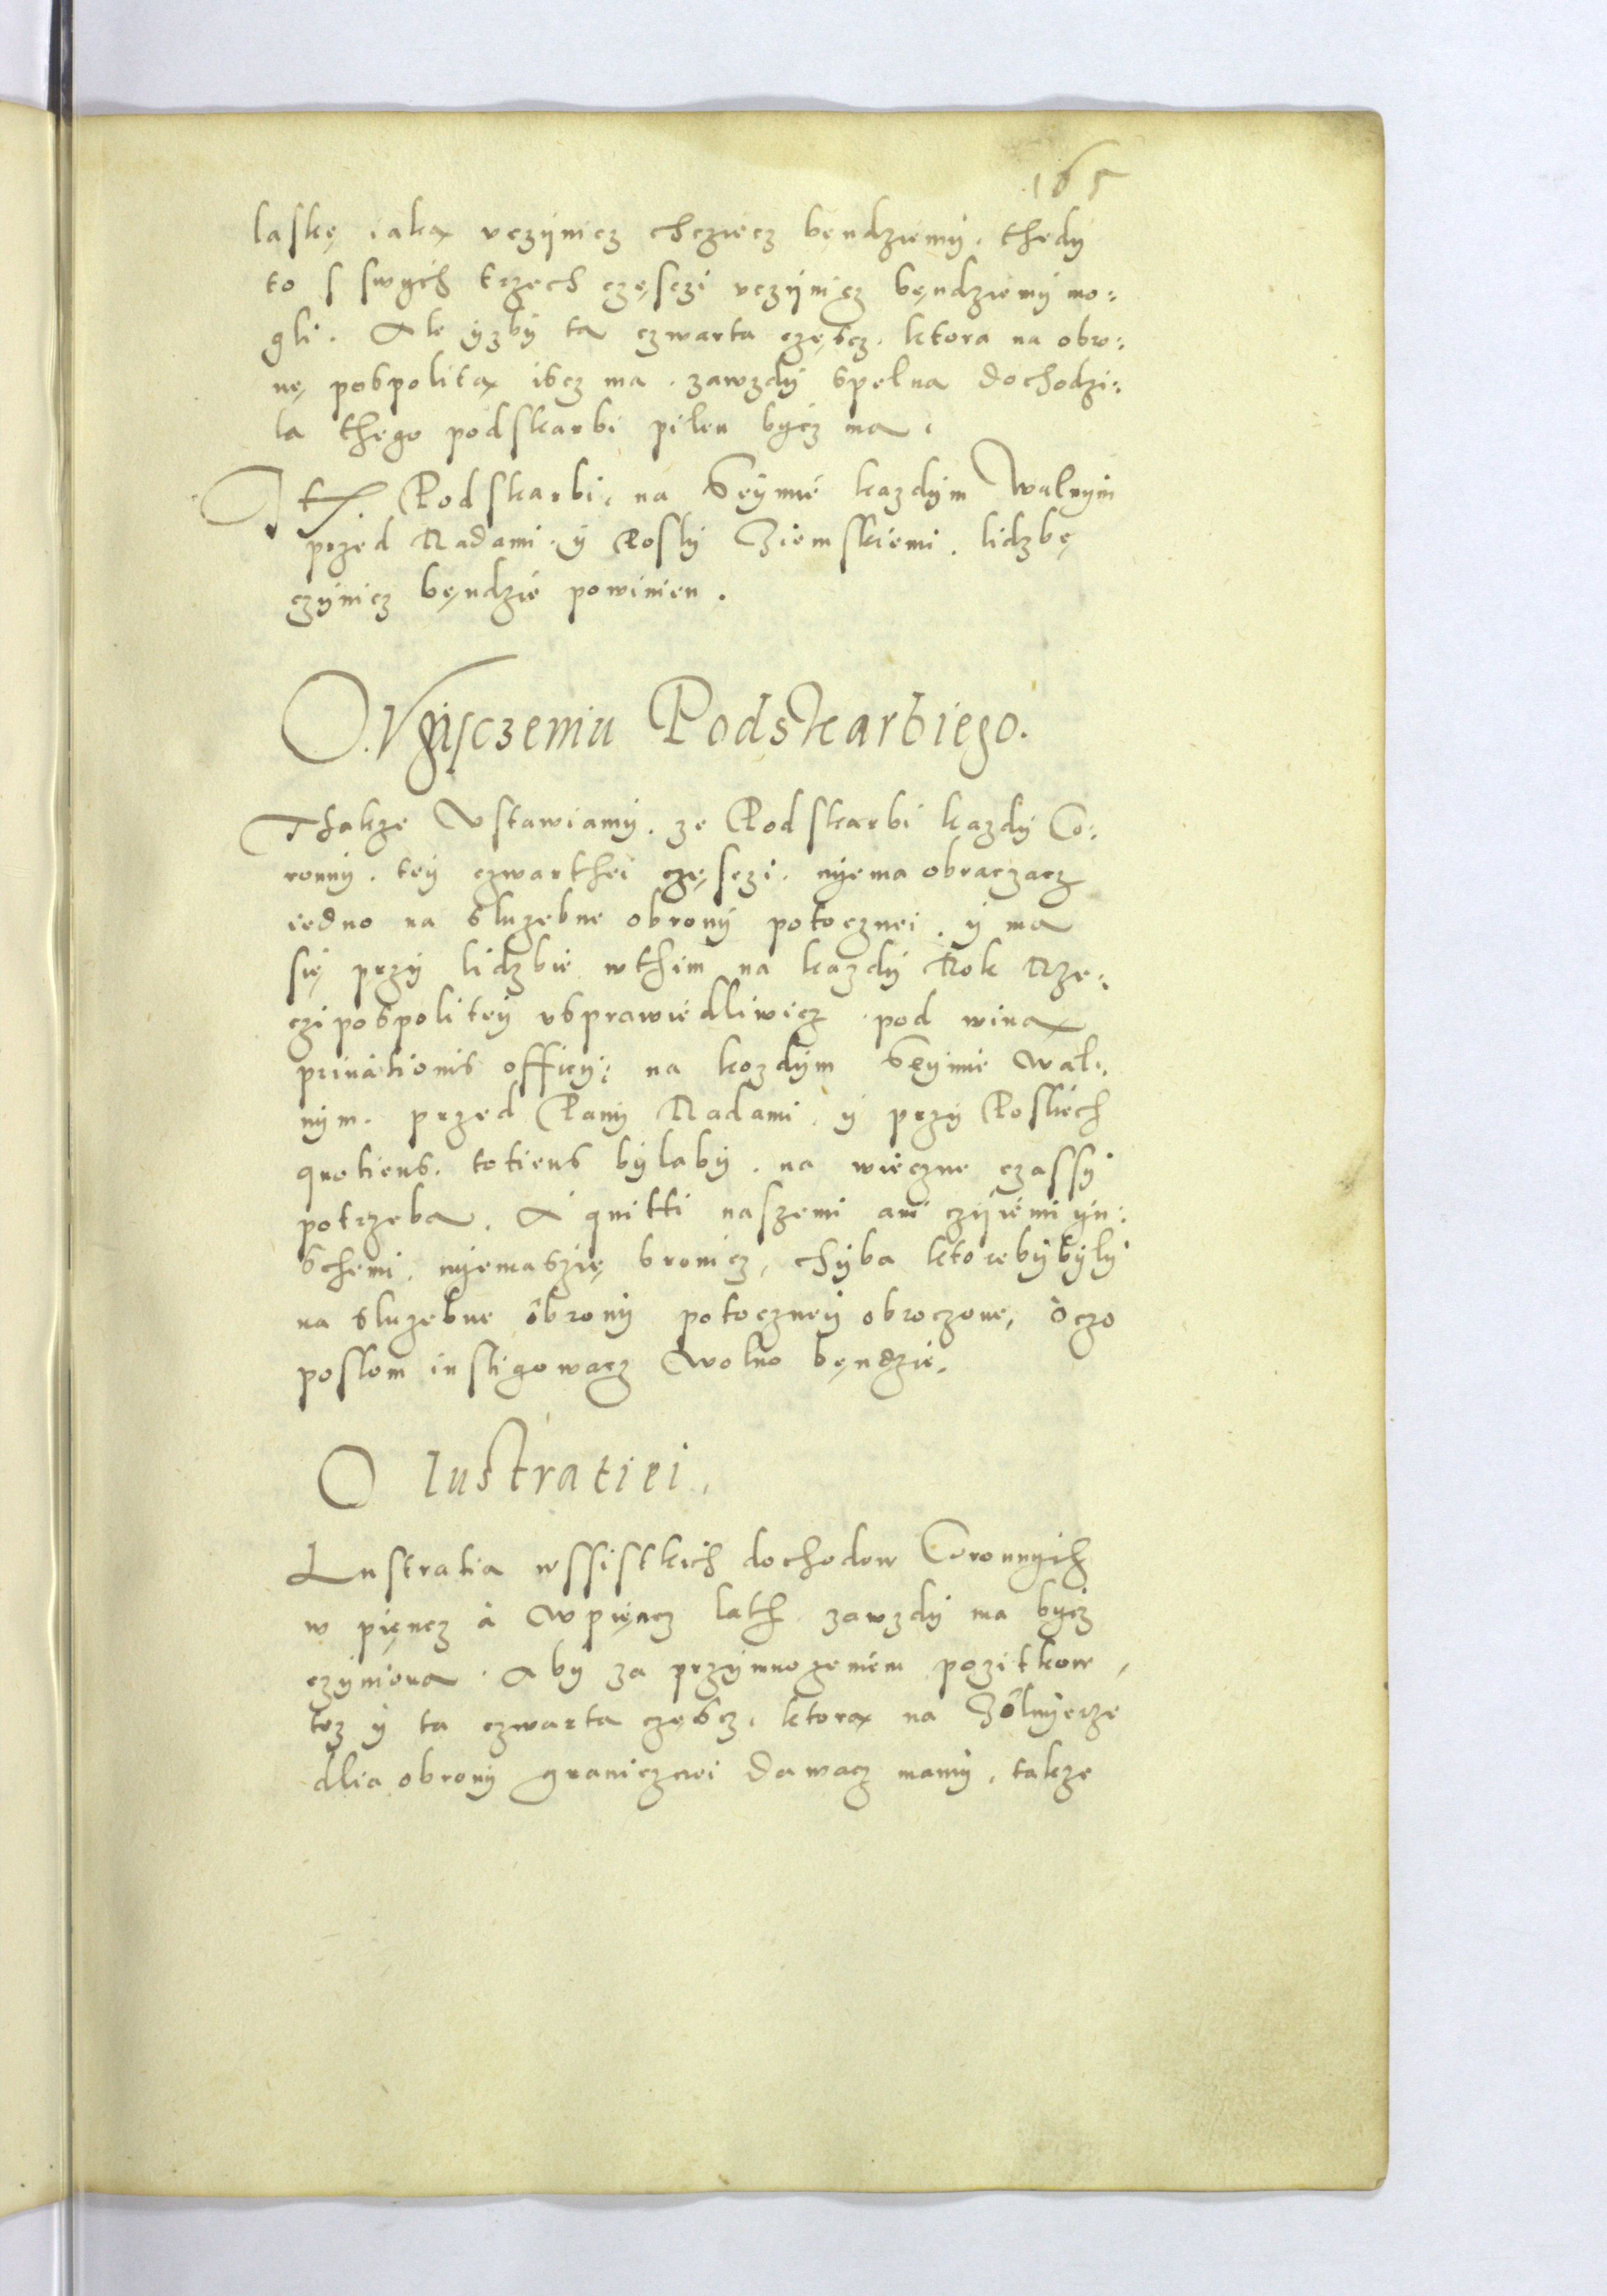 165
laskę iaką vczynicz chcziecz będziemy. thedy
to s swych trzech częsczi vczynicz bęndziemy mo:
gli. Ale yzby ta czwarta częscz. ktora na obro:
nę pospolitą iscz ma. zawzdy spelna dochodzi:
la thego podskarbi pilen bycz ma.
Podskarbi. na Seymie kazdym Walnym
przed Radami. y Posly Ziemskiemi. lidzbę
czynicz bęndzie powinien.
O. Podskarbiego.
Thakze Vstawiamy. ze Podskarbi kazdy Co:
ronny. tey czwarthei częsczi. nyema obraczacz
iedno na sluzebne obrony potocznei. y ma
się przy lidzbie wthim na kazdy Rok Rze:
czipospolitey vsprawiedliwicz pod winą
priuationis officij na kozdym Seymie wal:
nym. przed Pany Radami. y przy Posliech
quotiens. totiens bylaby. na wieczne czassy
potrzeba. A quitti naszemi ani czyiemi yn:
schemi. nyemaszię bronicz, chyba ktoreby byly
na sluzebne obrony potoczney obroczone, oczo
poslom instigowacz wolno bęndzie.
O lustratiei.
Lustratia wssistkich dochodow Coronnych
w pięncz a wpięncz lath zawzdy ma bycz
czyniona. aby za przymnozeniem pozitkow,
tez y ta czwarta częscz. ktorą na Zolnyerze
dlia obrony granicznei dawacz mamy. takze